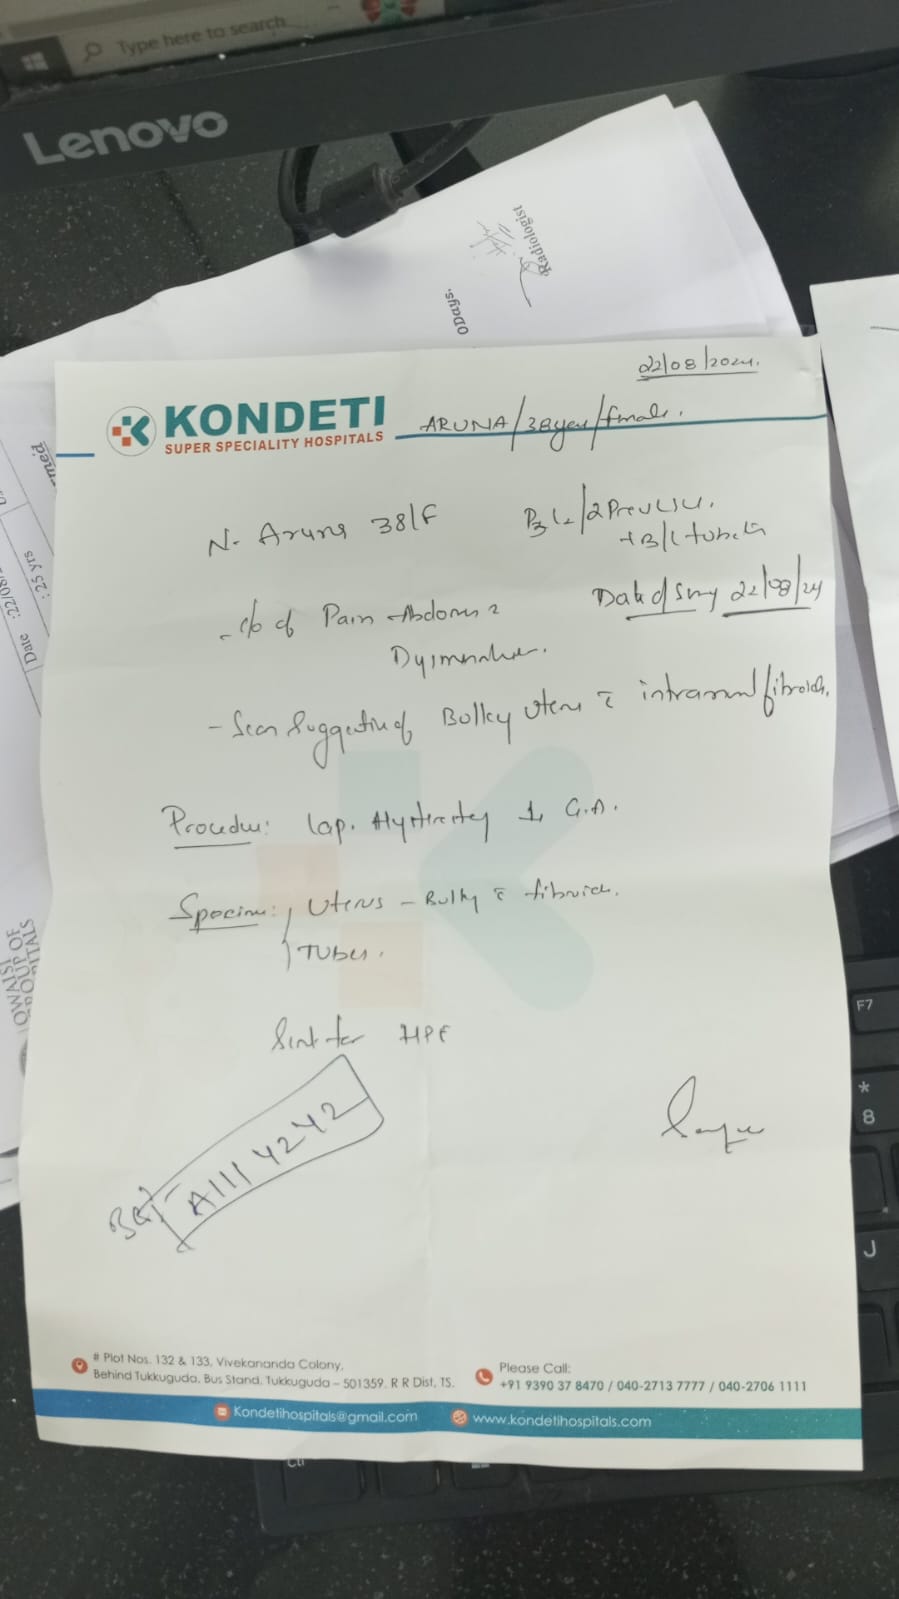 Type here to search
Lenovo
Radiologist
0Days.
22/08/2024.
KONDETI
SUPER SPECIALITY HOSPITALS
ARUNA/38year/female.
N. Aruna 38/F
P3L2/2Prev LSCS.
+B/L tubect
- c/o of Pain Abdomen
Date of Surg 22/08/24
- Scan Suggestive of Bulky uterus c̄ intramural fibroids.
Procedure: Lap. Hysterectomy G.A.
Specimen: Uterus - Bulky c̄ fibroid.
Tubes.
Sent for HPE
A1114242
: 25 yrs
Date :22/08/
OWAISI
GROUP OF
HOSPITALS
F7
*
8
J
# Plot Nos. 132 & 133, Vivekananda Colony,
Behind Tukkuguda, Bus Stand, Tukkuguda – 501359. R R Dist, TS.
Please Call:
+91 9390 37 8470 / 040-2713 7777 / 040-2706 1111
Kondetihospitals@gmail.com
www.kondetihospitals.com